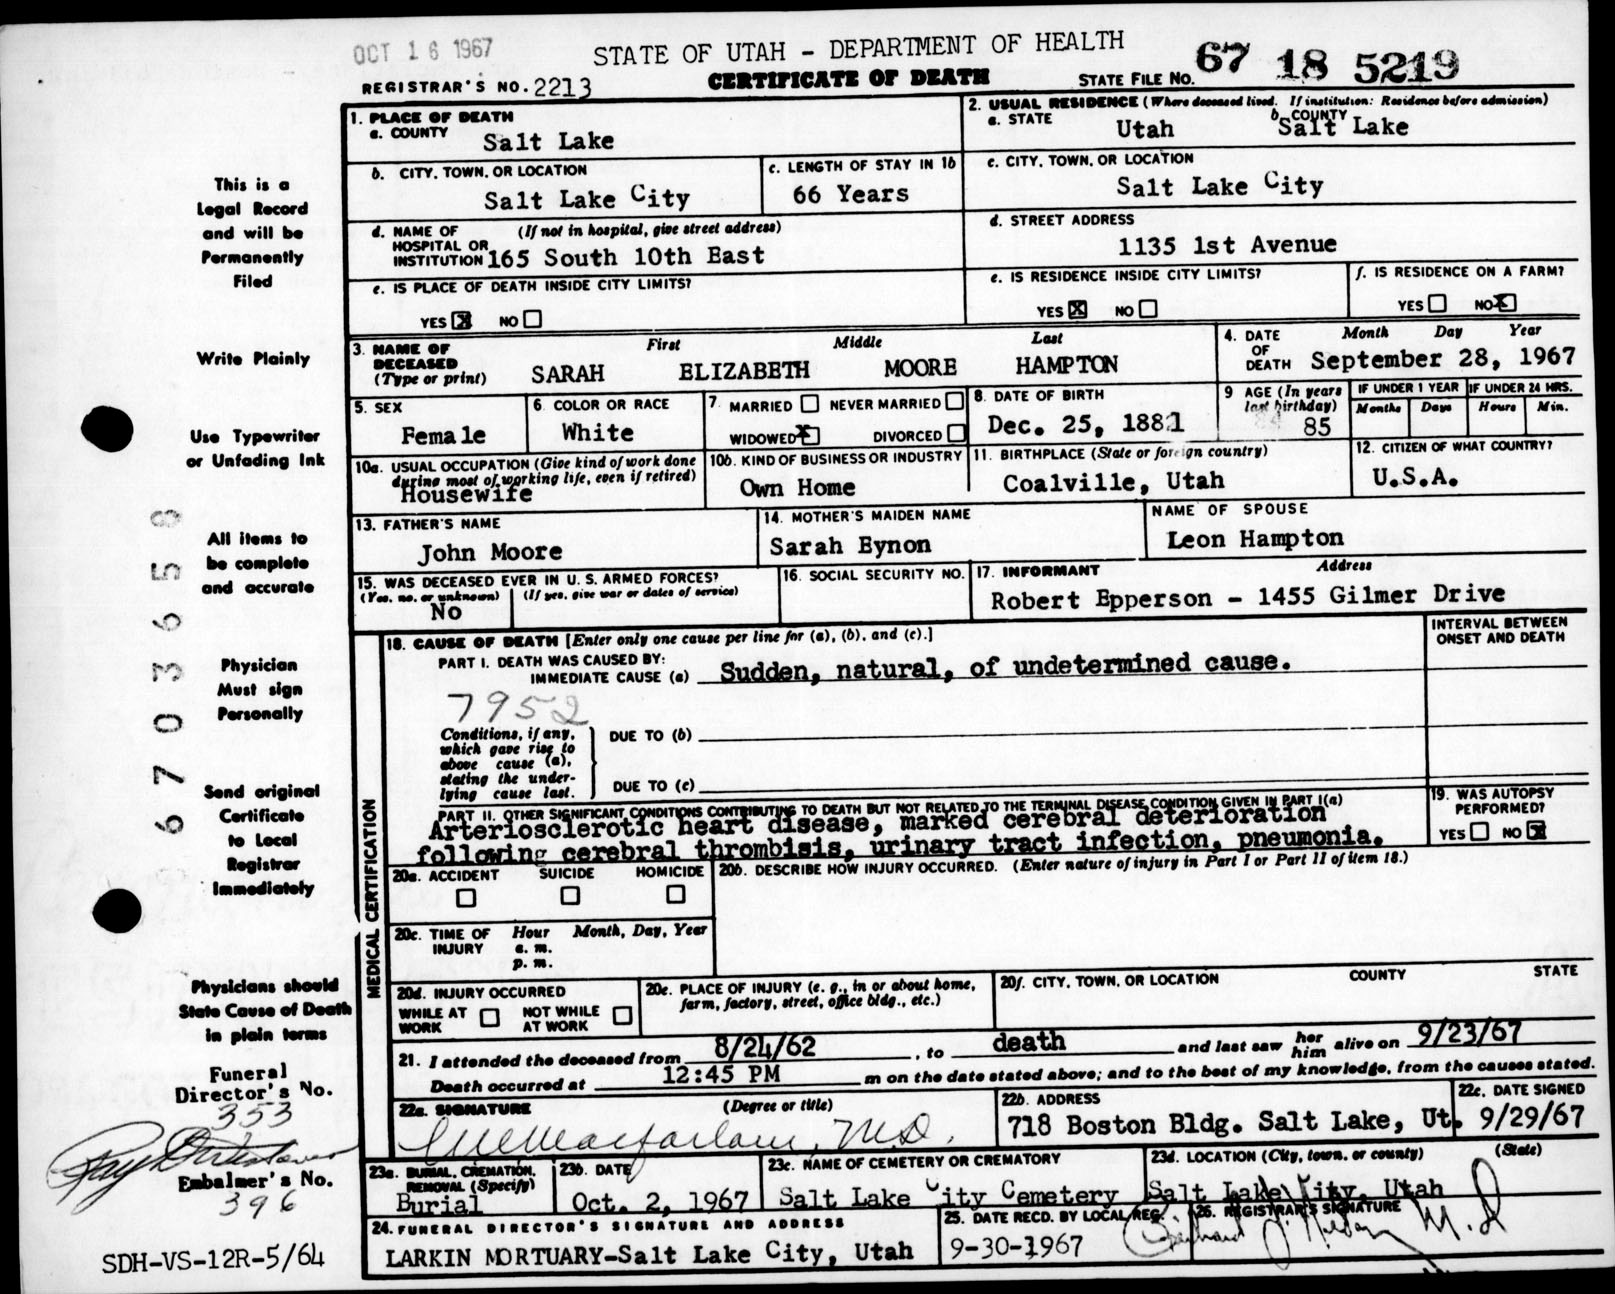 OCT 16 1967
STATE OF UTAH - DEPARTMENT OF HEALTH
REGISTRAR'S NO. 2213
CERTIFICATE OF DEATH
STATE FILE NO. 67 18 5219
1. PLACE OF DEATH
a. COUNTY
Salt Lake
2. USUAL RESIDENCE (Where deceased lived. If institution: Residence before admission)
a. STATE
Utah
b. COUNTY
Salt Lake
b. CITY, TOWN, OR LOCATION
Salt Lake City
c. LENGTH OF STAY IN 1b
66 Years
c. CITY, TOWN, OR LOCATION
Salt Lake City
d. NAME OF (If not in hospital, give street address)
HOSPITAL OR
INSTITUTION 165 South 10th East
d. STREET ADDRESS
1135 1st Avenue
e. IS PLACE OF DEATH INSIDE CITY LIMITS?
YES X NO
e. IS RESIDENCE INSIDE CITY LIMITS?
YES X NO
f. IS RESIDENCE ON A FARM?
YES NO X
3. NAME OF
DECEASED
(Type or print)
First Middle Last
SARAH ELIZABETH MOORE HAMPTON
4. DATE
OF
DEATH
Month Day Year
September 28, 1967
5. SEX
Female
6. COLOR OR RACE
White
7. MARRIED NEVER MARRIED
WIDOWED X DIVORCED
8. DATE OF BIRTH
Dec. 25, 1881
9 AGE (In years
last birthday)
85
IF UNDER 1 YEAR
Months Days
IF UNDER 24 HRS.
Hours Min.
10a. USUAL OCCUPATION (Give kind of work done
during most of working life, even if retired)
Housewife
10b. KIND OF BUSINESS OR INDUSTRY
Own Home
11. BIRTHPLACE (State or foreign country)
Coalville, Utah
12. CITIZEN OF WHAT COUNTRY?
U.S.A.
13. FATHER'S NAME
John Moore
14. MOTHER'S MAIDEN NAME
Sarah Eynon
NAME OF SPOUSE
Leon Hampton
15. WAS DECEASED EVER IN U. S. ARMED FORCES?
(Yes, no, or unknown) (If yes, give war or dates of service)
No
16. SOCIAL SECURITY NO.
17. INFORMANT Address
Robert Epperson - 1455 Gilmer Drive
MEDICAL CERTIFICATION
18. CAUSE OF DEATH [Enter only one cause per line for (a), (b), and (c).]
INTERVAL BETWEEN
ONSET AND DEATH
PART I. DEATH WAS CAUSED BY:
IMMEDIATE CAUSE (a) Sudden, natural, of undetermined cause.
7952
Conditions, if any,
which gave rise to
above cause (a),
stating the under-
lying cause last.
DUE TO (b)
DUE TO (c)
PART II. OTHER SIGNIFICANT CONDITIONS CONTRIBUTING TO DEATH BUT NOT RELATED TO THE TERMINAL DISEASE CONDITION GIVEN IN PART I(a)
Arteriosclerotic heart disease, marked cerebral deterioration
following cerebral thrombisis, urinary tract infection, pneumonia.
19. WAS AUTOPSY
PERFORMED?
YES NO X
20a. ACCIDENT SUICIDE HOMICIDE
20b. DESCRIBE HOW INJURY OCCURRED. (Enter nature of injury in Part I or Part II of item 18.)
20c. TIME OF Hour Month, Day, Year
INJURY a. m.
p. m.
20d. INJURY OCCURRED
WHILE AT
WORK
NOT WHILE
AT WORK
20e. PLACE OF INJURY (e. g., in or about home,
farm, factory, street, office bldg., etc.)
20f. CITY, TOWN, OR LOCATION COUNTY STATE
21. I attended the deceased from 8/24/62, to death and last saw her him alive on 9/23/67
Death occurred at 12:45 PM m on the date stated above; and to the best of my knowledge, from the causes stated.
22a. SIGNATURE (Degree or title)
Macfarlane, M.D.
22b. ADDRESS
718 Boston Bldg. Salt Lake, Ut.
22c. DATE SIGNED
9/29/67
23a. BURIAL, CREMATION,
REMOVAL (Specify)
Burial
23b. DATE
Oct. 2, 1967
23c. NAME OF CEMETERY OR CREMATORY
Salt Lake City Cemetery
23d. LOCATION (City, town, or county) (State)
Salt Lake City, Utah
24. FUNERAL DIRECTOR'S SIGNATURE AND ADDRESS
LARKIN MORTUARY-Salt Lake City, Utah
25. DATE RECD. BY LOCAL REG.
9-30-1967
26. REGISTRAR'S SIGNATURE
This is a
Legal Record
and will be
Permanently
Filed
Write Plainly
Use Typewriter
or Unfading Ink
All items to
be complete
and accurate
Physician
Must sign
Personally
Send original
Certificate
to Local
Registrar
Immediately
Physicians should
State Cause of Death
in plain terms
Funeral
Director's No.
353
Embalmer's No.
396
SDH-VS-12R-5/64
670036558